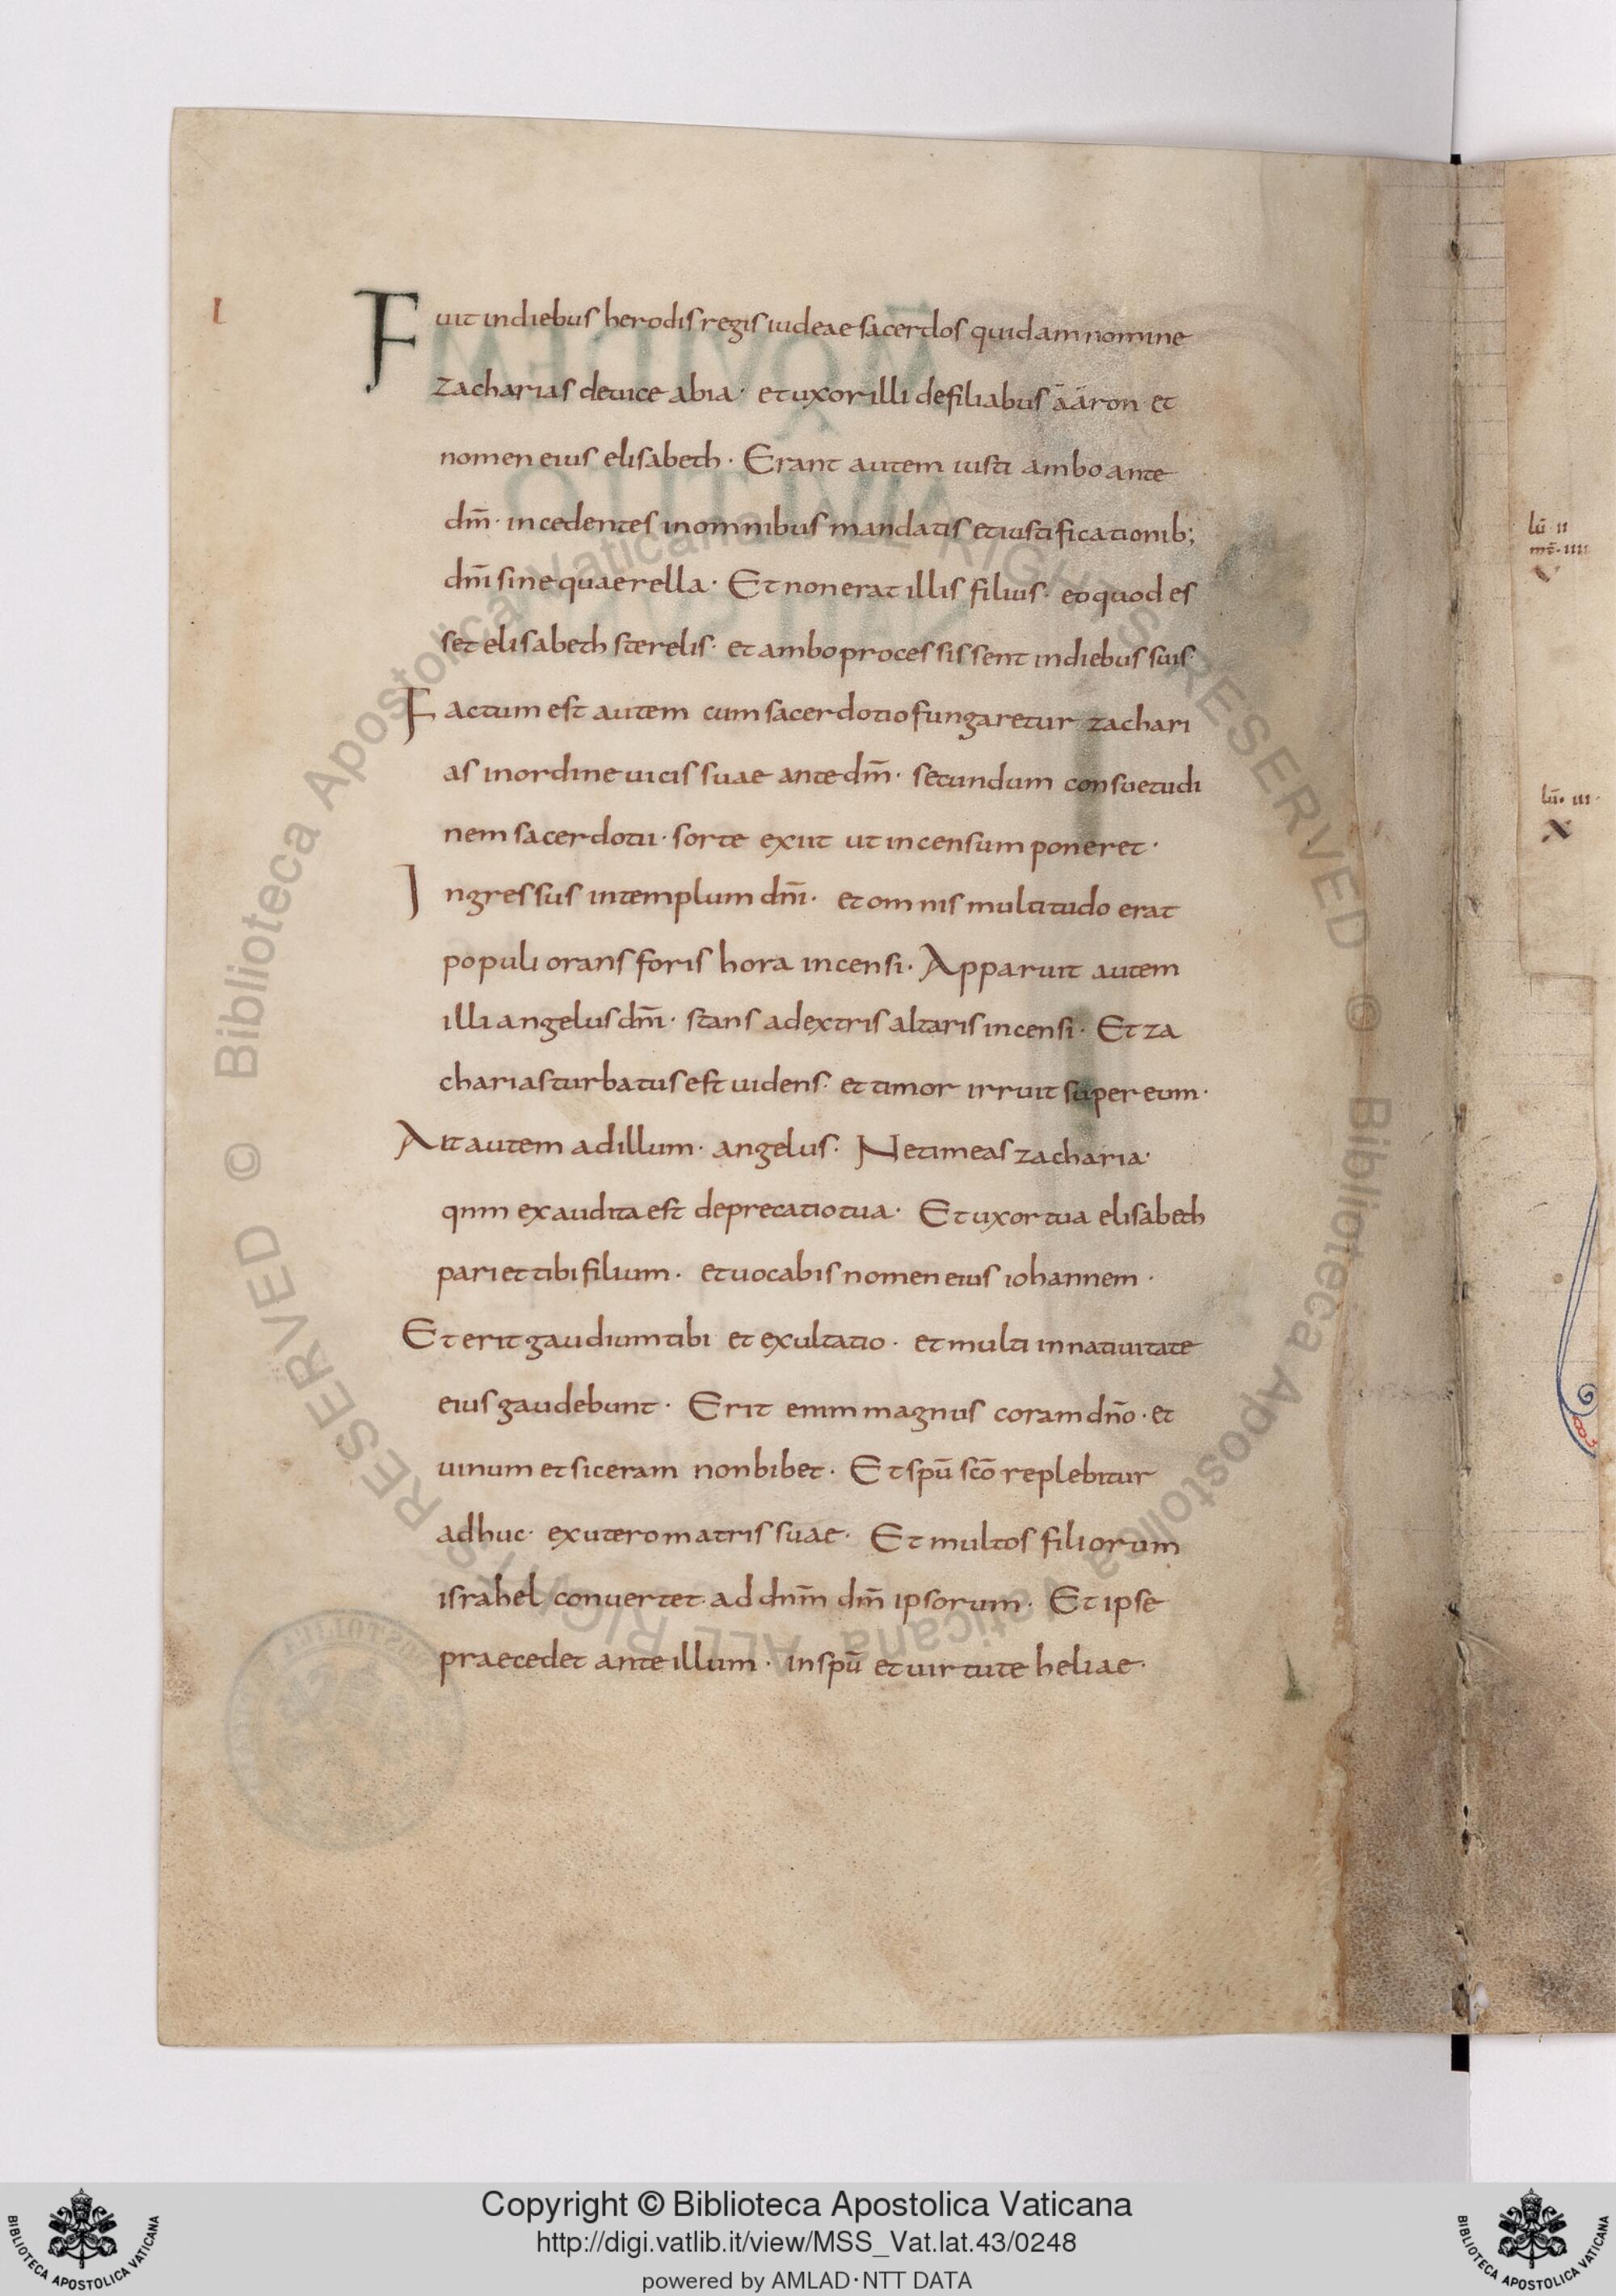 I
Fuit in diebus herodis regis iudeae sacerdos quidam nomine
zacharias de uice abia· et uxor illi de filiabus aaron· et
nomen eius elisabeth· Erant autem iusti ambo ante
dm̄· incedentes in omnibus mandatis et iustificationib;
dnī sine quaerella· Et non erat illis filius· eo quod es
set elisabeth sterelis· et ambo processissent in diebus suis·
Factum est autem cum sacerdotio fungaretur zachari
as in ordine uicis suae ante dm̄· secundum consuetudi
nem sacerdotii· sorte exiit ut incensum poneret·
Ingressus in templum dnī· et omnis multitudo erat
populi orans foris hora incensi· Apparuit autem
illi angelus dnī· stans a dextris altaris incensi· Et za
charias turbatus est uidens· et timor irruit super eum·
Ait autem ad illum· angelus· Ne timeas zacharia·
qnm exaudita est deprecatio tua· Et uxor tua elisabeth
pariet tibi filium· et uocabis nomen eius iohannem·
Et erit gaudium tibi et exultatio· et multi in natiuitate
eius gaudebunt· Erit enim magnus coram dno̅· et
uinum et siceram non bibet· Et spū sco̅ replebitur
adhuc· ex utero matris suae· Et multos filiorum
israhel conuertet ad dnm̄ dm̄ ipsorum· Et ipse
praecedet ante illum· in spū et uirtute heliae·
lū· II
mt̄· IIII
lū· III·
X
© Biblioteca Apostolica Vaticana ALL RIGHTS RESERVED © Biblioteca Apostolica Vaticana ALL RIGHTS RESERVED
Copyright © Biblioteca Apostolica Vaticana
http://digi.vatlib.it/view/MSS_Vat.lat.43/0248
powered by AMLAD·NTT DATA
BIBLIOTECA APOSTOLICA VATICANA
BIBLIOTECA APOSTOLICA VATICANA